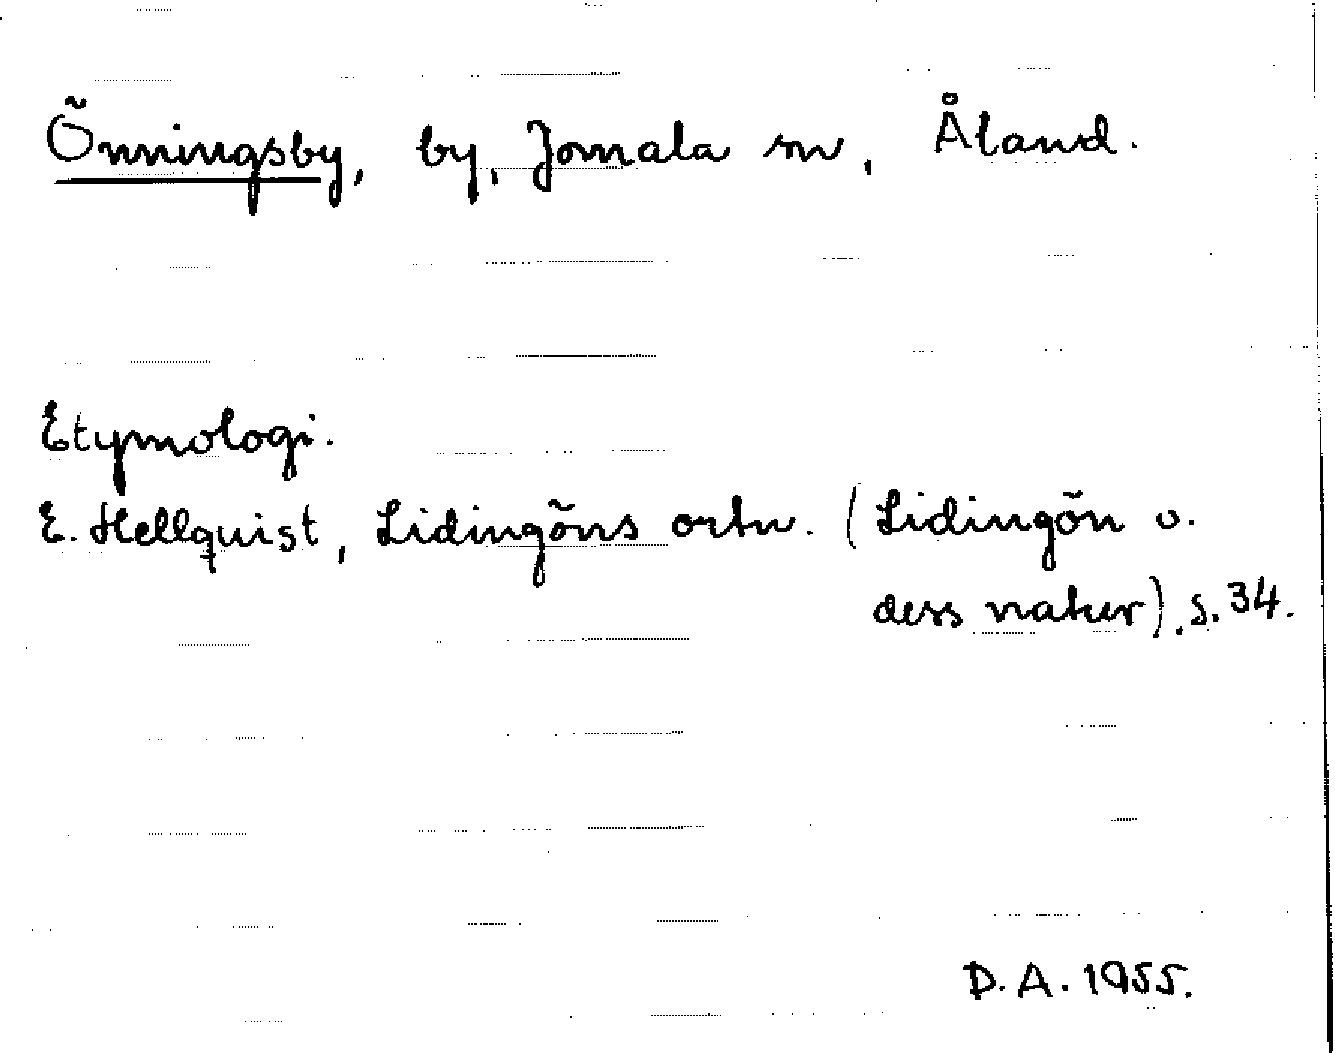 Önningsby, by, Jomala sn, Åland.
Etymologi.
E. Hellquist, Lidingöns ortn. (Lidingön o.
dess natur), s. 34.
D. A. 1955.